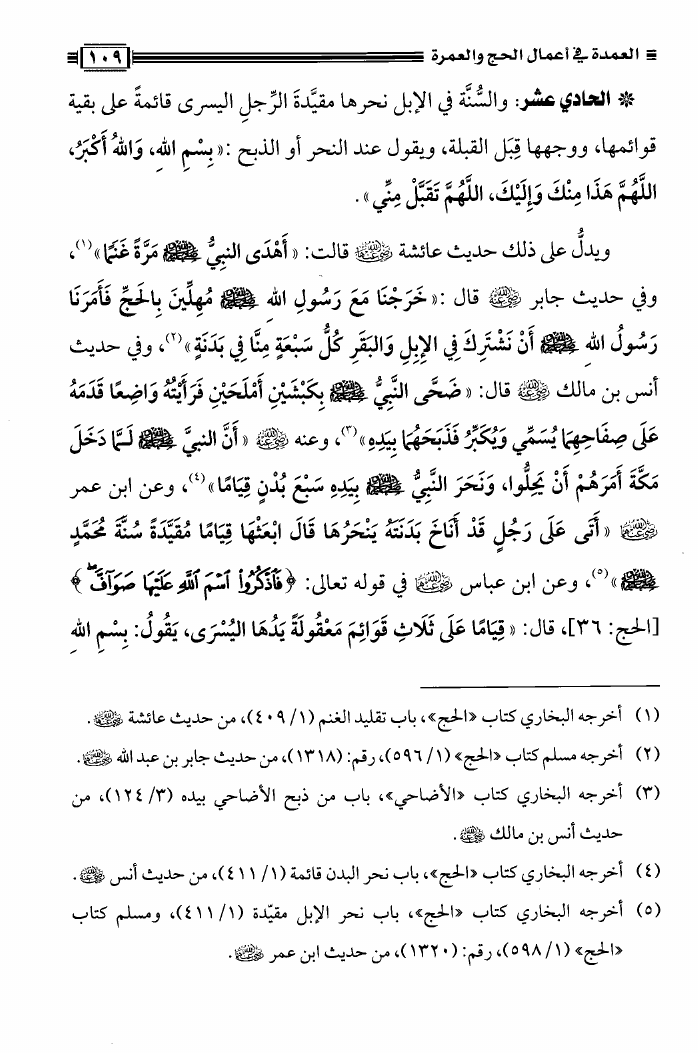 العمدة في أعمال الحج والعمرة ١٠٩
* الحادي عشر: والسُّنَّة في الإبل نحرها مقيَّدَةَ الرِّجلِ اليسرى قائمةً على بقية
قوائمها، ووجهها قِبَل القبلة، ويقول عند النحر أو الذبح: «بِسْمِ اللهِ، وَاللهُ أَكْبَرُ،
اللَّهُمَّ هَذَا مِنْكَ وَإِلَيْكَ، اللَّهُمَّ تَقَبَّلْ مِنِّي».
ويدلُّ على ذلك حديث عائشة رضي الله عنها قالت: «أَهْدَى النبيُّ ﷺ مَرَّةً غَنَمًا»(١)،
وفي حديث جابر رضي الله عنه قال: «خَرَجْنَا مَعَ رَسُولِ اللهِ ﷺ مُهِلِّينَ بِالحَجِّ فَأَمَرَنَا
رَسُولُ اللهِ ﷺ أَنْ نَشْتَرِكَ فِي الإِبِلِ وَالبَقَرِ كُلُّ سَبْعَةٍ مِنَّا فِي بَدَنَةٍ»(٢)، وفي حديث
أنس بن مالك رضي الله عنه قال: «ضَحَّى النَّبِيُّ ﷺ بِكَبْشَيْنِ أَمْلَحَيْنِ فَرَأَيْتُهُ وَاضِعًا قَدَمَهُ
عَلَى صِفَاحِهِمَا يُسَمِّي وَيُكَبِّرُ فَذَبَحَهُمَا بِيَدِهِ»(٣)، وعنه رضي الله عنه «أَنَّ النبيَّ ﷺ لَـمَّا دَخَلَ
مَكَّةَ أَمَرَهُمْ أَنْ يَحِلُّوا، وَنَحَرَ النَّبِيُّ ﷺ بِيَدِهِ سَبْعَ بُدْنٍ قِيَامًا»(٤)، وعن ابن عمر
رضي الله عنهما «أَتَى عَلَى رَجُلٍ قَدْ أَنَاخَ بَدَنَتَهُ يَنْحَرُهَا قَالَ ابْعَثْهَا قِيَامًا مُقَيَّدَةً سُنَّةَ مُحَمَّدٍ
ﷺ»(٥)، وعن ابن عباس رضي الله عنهما في قوله تعالى: ﴿فَاذْكُرُوا اسْمَ اللَّهِ عَلَيْهَا صَوَافَّ﴾
[الحج: ٣٦]، قال: «قِيَامًا عَلَى ثَلَاثِ قَوَائِمَ مَعْقُولَةً يَدُهَا اليُسْرَى، يَقُولُ: بِسْمِ اللهِ
(١) أخرجه البخاري كتاب «الحج»، باب تقليد الغنم (١/ ٤٠٩)، من حديث عائشة رضي الله عنها.
(٢) أخرجه مسلم كتاب «الحج» (١/ ٥٩٦)، رقم: (١٣١٨)، من حديث جابر بن عبد الله رضي الله عنهما.
(٣) أخرجه البخاري كتاب «الأضاحي»، باب من ذبح الأضاحي بيده (٣/ ١٢٤)، من
حديث أنس بن مالك رضي الله عنه.
(٤) أخرجه البخاري كتاب «الحج»، باب نحر البدن قائمة (١/ ٤١١)، من حديث أنس رضي الله عنه.
(٥) أخرجه البخاري كتاب «الحج»، باب نحر الإبل مقيّدة (١/ ٤١١)، ومسلم كتاب
«الحج» (١/ ٥٩٨)، رقم: (١٣٢٠)، من حديث ابن عمر رضي الله عنهما.